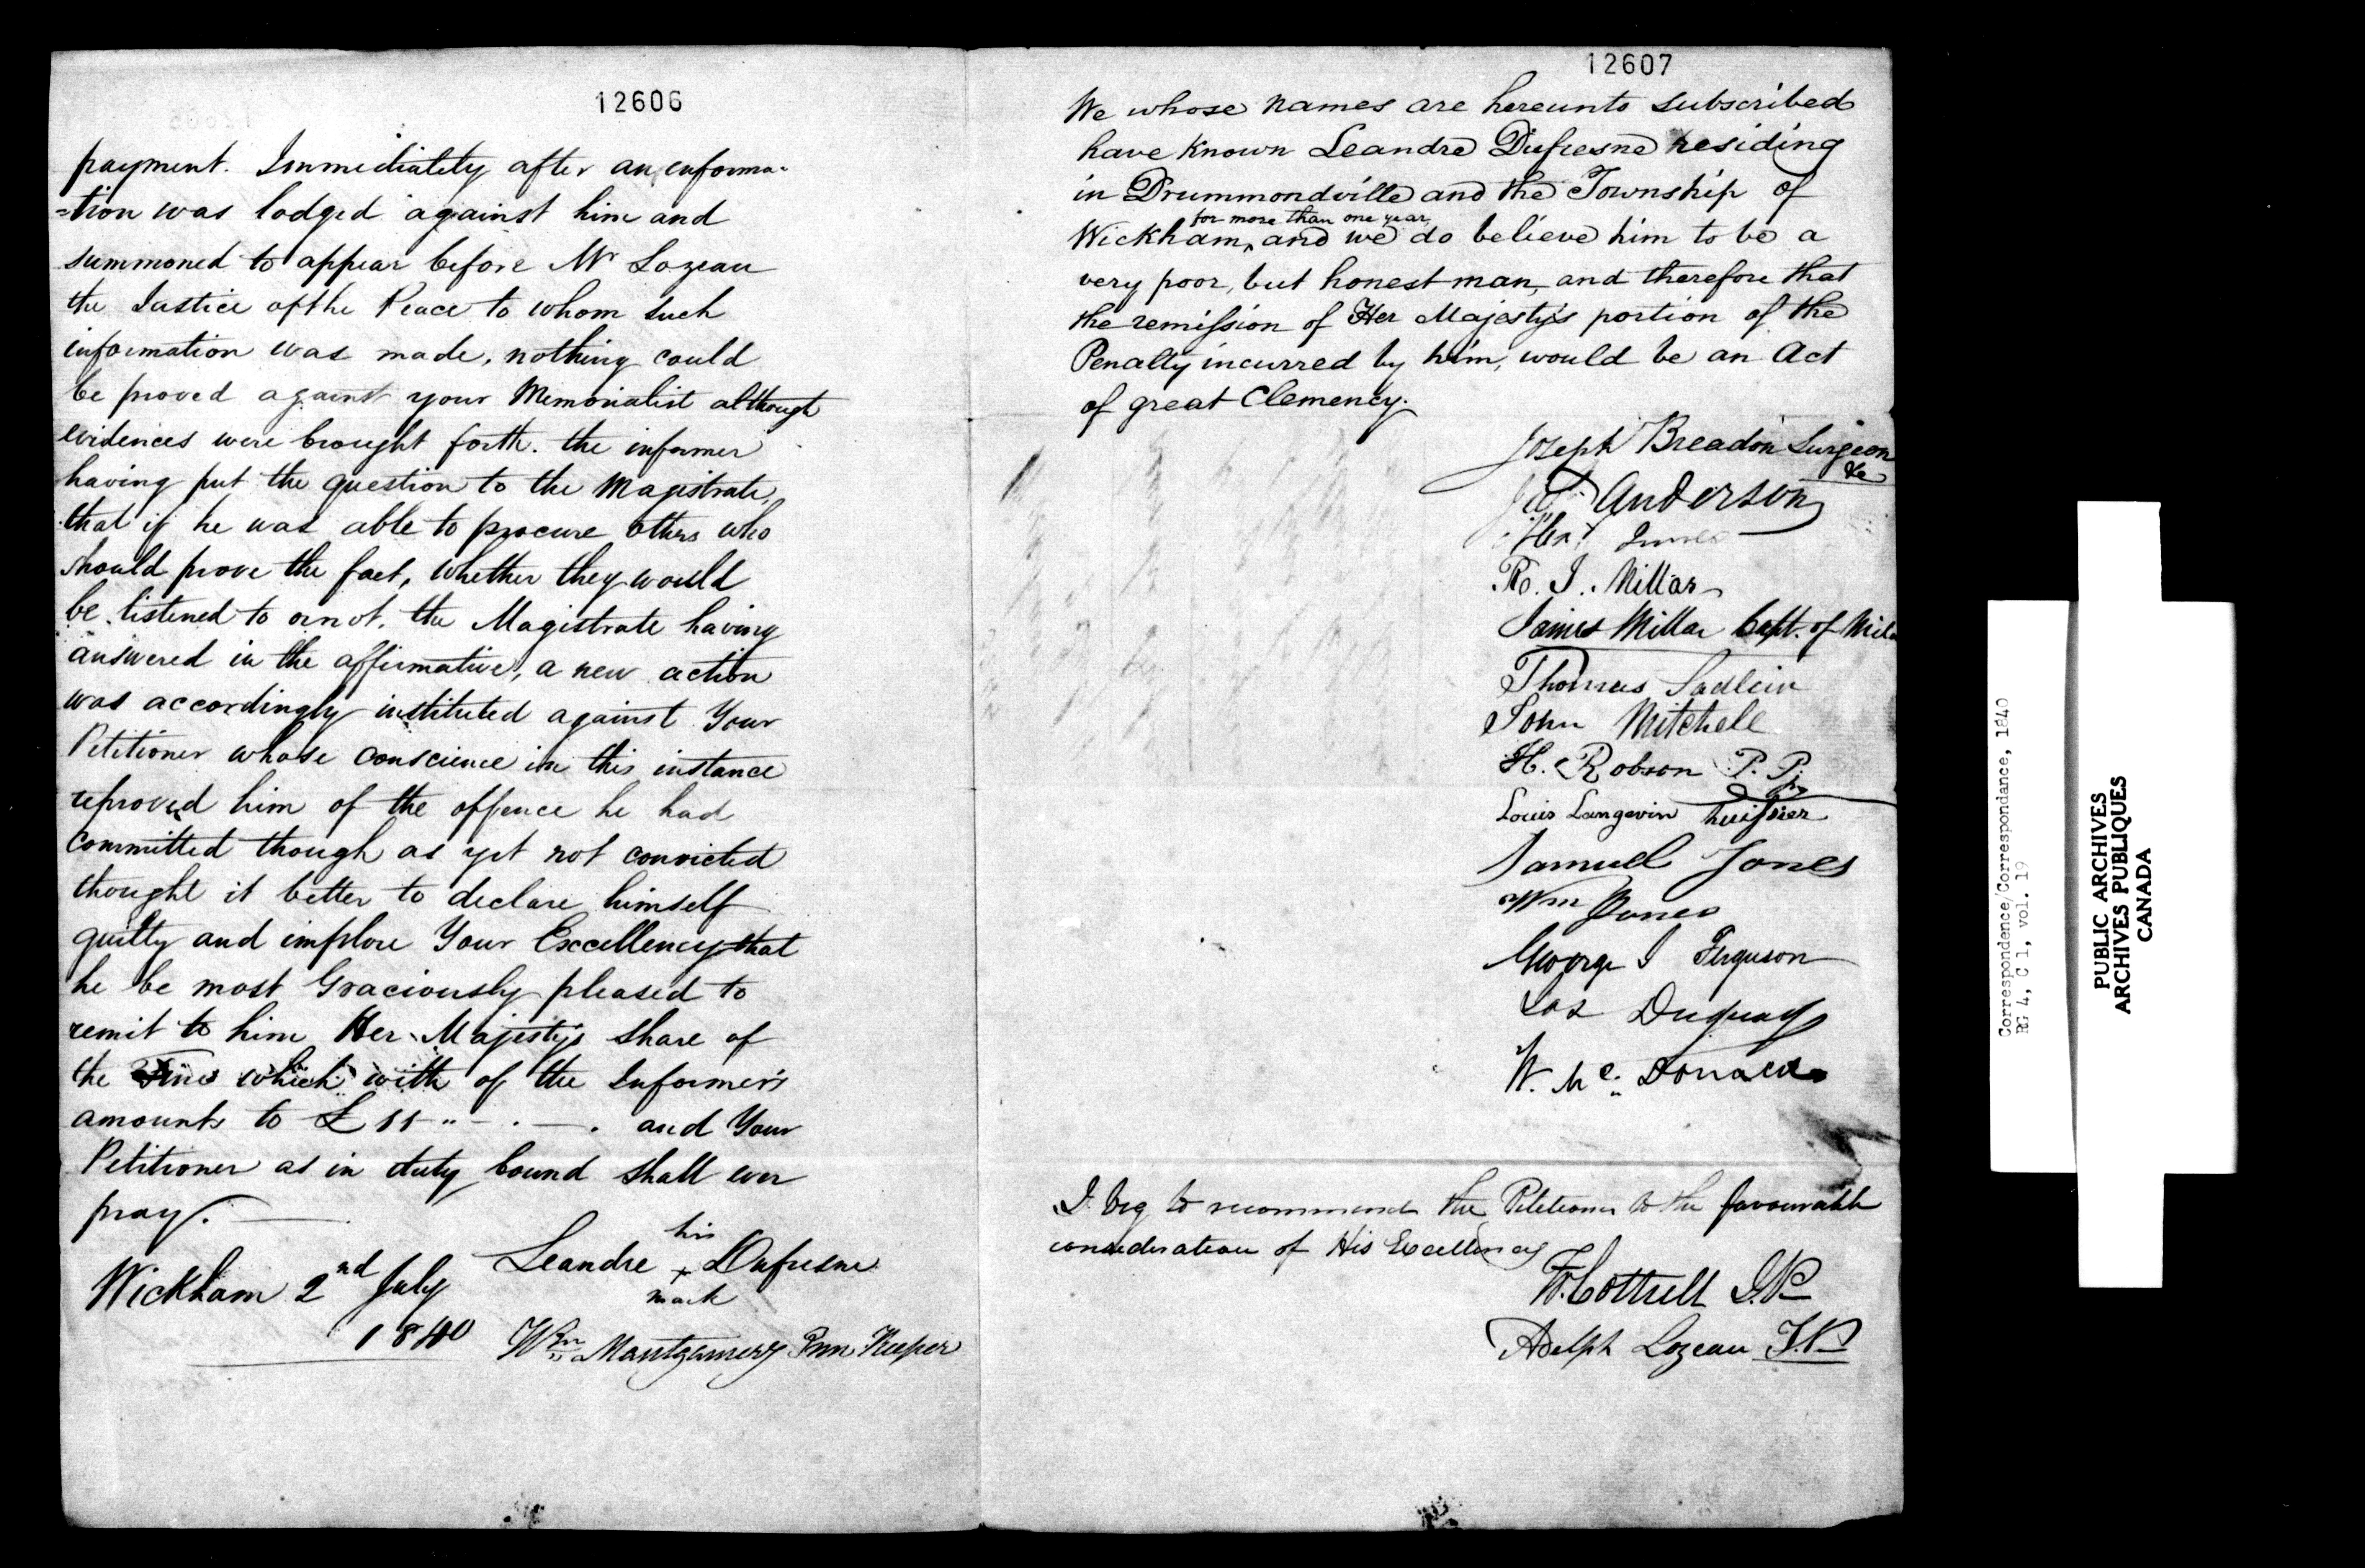 12606
payment. Immediately after an informa-
=tion was lodged against him and
summoned to appear before Mr Lozeau
the Justice of the Peace to whom such
information was made, nothing could
be proved against your Memorialist although
evidences were brought forth. the informer
having put the question to the Magistrate,
that if he was able to procure others who
should prove the fact, whether they would
be listened to or not. the Magistrate having
answered in the affirmative, a new action
was accordingly instituted against Your
Petitioner whose conscience in this instance
reproved him of the offence he had
committed though as yet not convicted
thought it better to declare himself
guilty and implore Your Excellency that
he be most Graciously pleased to
remit to him Her Majesty's share of
the Fine which with of the Informer's
amounts to £ 11 - " - . - . and Your
Petitioner as in duty bound shall ever
pray.
his
Leandre + Dufresne
mark
Wickham 2nd July
1840
Wm Montgomery Inn Keeper
12607
We whose names are hereunto subscribed
have known Leandre Dufresne residing
in Drummondville and the Township of
for more than one year
Wickham, and we do believe him to be a
very poor, but honest man, and therefore that
the remission of Her Majesty's portion of the
Penalty incurred by him, would be an Act
of great Clemency.
Joseph Breadon Surgeon
&c
Anderson
Alexr
R. J. Millar
James Millar Capt. of Mil
Thomas Sadleir
John Mitchell
H. Robson P. P.
Louis Langevin huissier
Samuel Jones
Wm Jones
George I Ferguson
Duguay
W. Mc. Donald
I beg to recommend the Petitioner to the favourable
consideration of His Excellency
W. Cottrell J.P
Adolph Lozeau J.P
Correspondence/Correspondance, 1840
RG 4, C 1, vol. 19
PUBLIC ARCHIVES
ARCHIVES PUBLIQUES
CANADA